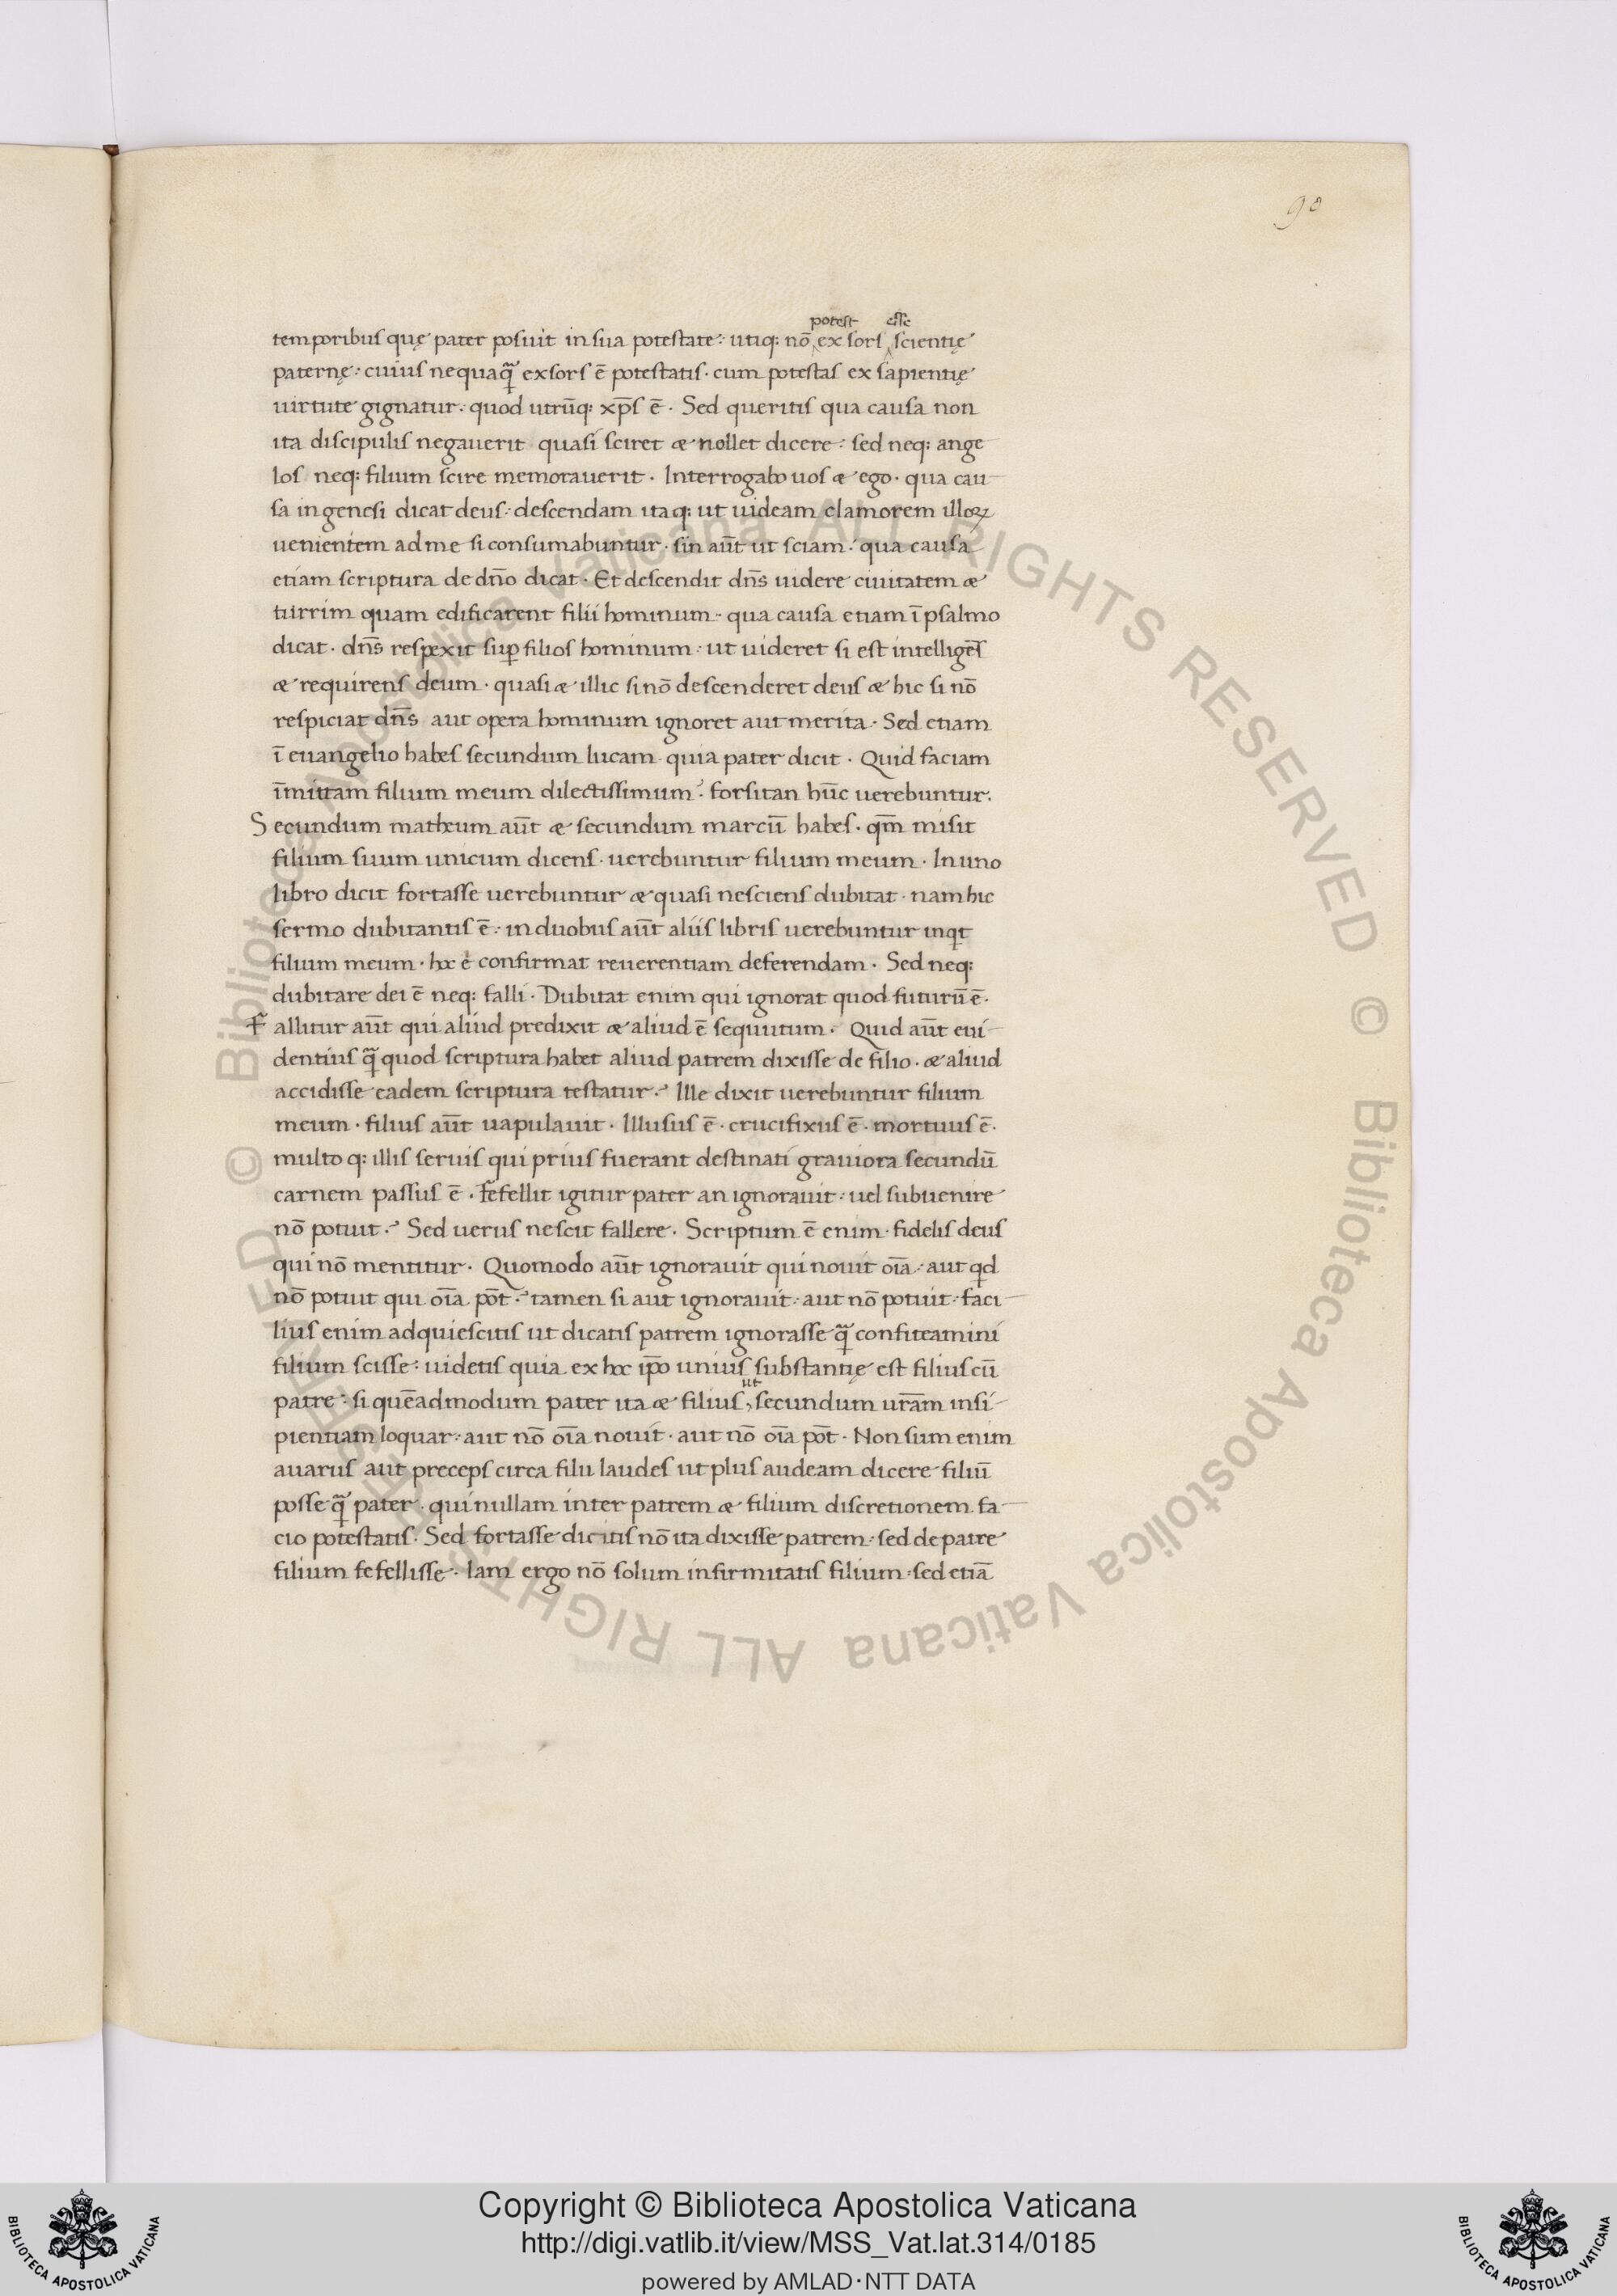 90
temporibus quę pater posuit in sua potestate: utiq: nō potest exsors esse scientię
paternę: cuius nequaq̄ exsors ē potestatis. cum potestas ex sapientię
uirtute gignatur: quod utrūq: xp̄s ē. Sed queritis qua causa non
ita discipulis negauerit quasi sciret æ nollet dicere: sed neq: ange
los neq: filium scire memorauerit. Interrogabo uos æ ego. qua cau-
sa in genesi dicat deus: descendam itaq: ut uideam clamorem illoꝝ
uenientem ad me si consumabuntur. sin aūt ut sciam: qua causa
etiam scriptura de dn̄o dicat. Et descendit dn̄s uidere ciuitatem æ
turrim quam edificarent filii hominum. qua causa etiam ī psalmo
dicat. dn̄s respexit suꝑ filios hominum: ut uideret si est intelligēs
æ requirens deum. quasi æ illic si nō descenderet deus æ hic si nō
respiciat dn̄s aut opera hominum ignoret aut merita. Sed etiam
ī euangelio habes secundum lucam. quia pater dicit. Quid faciam
īmittam filium meum dilectissimum? forsitan hūc uerebuntur.
Secundum matheum aūt æ secundum marcū habes. qm̄ misit
filium suum unicum dicens. uerebuntur filium meum. In uno
libro dicit fortasse uerebuntur æ quasi nesciens dubitat. nam hic
sermo dubitantis ē: in duobus aūt aliis libris uerebuntur inqt
filium meum. hoc ē confirmat reuerentiam deferendam. Sed neq:
dubitare dei ē neq: falli. Dubitat enim qui ignorat quod futurū ē.
Fallitur aūt qui aliud predixit æ aliud ē sequutum. Quid aūt eui-
dentius q̄ quod scriptura habet aliud patrem dixisse de filio. æ aliud
accidisse eadem scriptura testatur? Ille dixit uerebuntur filium
meum. filius aūt uapulauit. Illusus ē. crucifixus ē. mortuus ē.
multo q: illis seruis qui prius fuerant destinati grauiora secundū
carnem passus ē. fefellit igitur pater an ignorauit: uel subuenire
nō potuit? Sed uerus nescit fallere. Scriptum ē enim. fidelis deus
qui nō mentitur. Quomodo aūt ignorauit qui nouit oīa: aut qd
nō potuit qui oīa pōt? tamen si aut ignorauit: aut nō potuit: faci-
lius enim adquiescitis ut dicatis patrem ignorasse q̄ confiteamini
filium scisse: uidetis quia ex hoc ip̄o unius substantię est filius cū
patre: si quēadmodum pater ita æ filius, ut secundum ur̄am insi-
pientiam loquar: aut nō oīa nouit. aut nō oīa pōt. Non sum enim
auarus aut preceps circa filii laudes ut plus audeam dicere filiū
posse q̄ pater. qui nullam inter patrem æ filium discretionem fa-
cio potestatis. Sed fortasse dicitis nō ita dixisse patrem: sed de patre
filium fefellisse. Iam ergo nō solum infirmitatis filium. sed etiā
© Biblioteca Apostolica Vaticana ALL RIGHTS RESERVED © Biblioteca Apostolica Vaticana ALL RIGHTS RESERVED
Copyright © Biblioteca Apostolica Vaticana
http://digi.vatlib.it/view/MSS_Vat.lat.314/0185
powered by AMLAD·NTT DATA
BIBLIOTECA APOSTOLICA VATICANA
BIBLIOTECA APOSTOLICA VATICANA